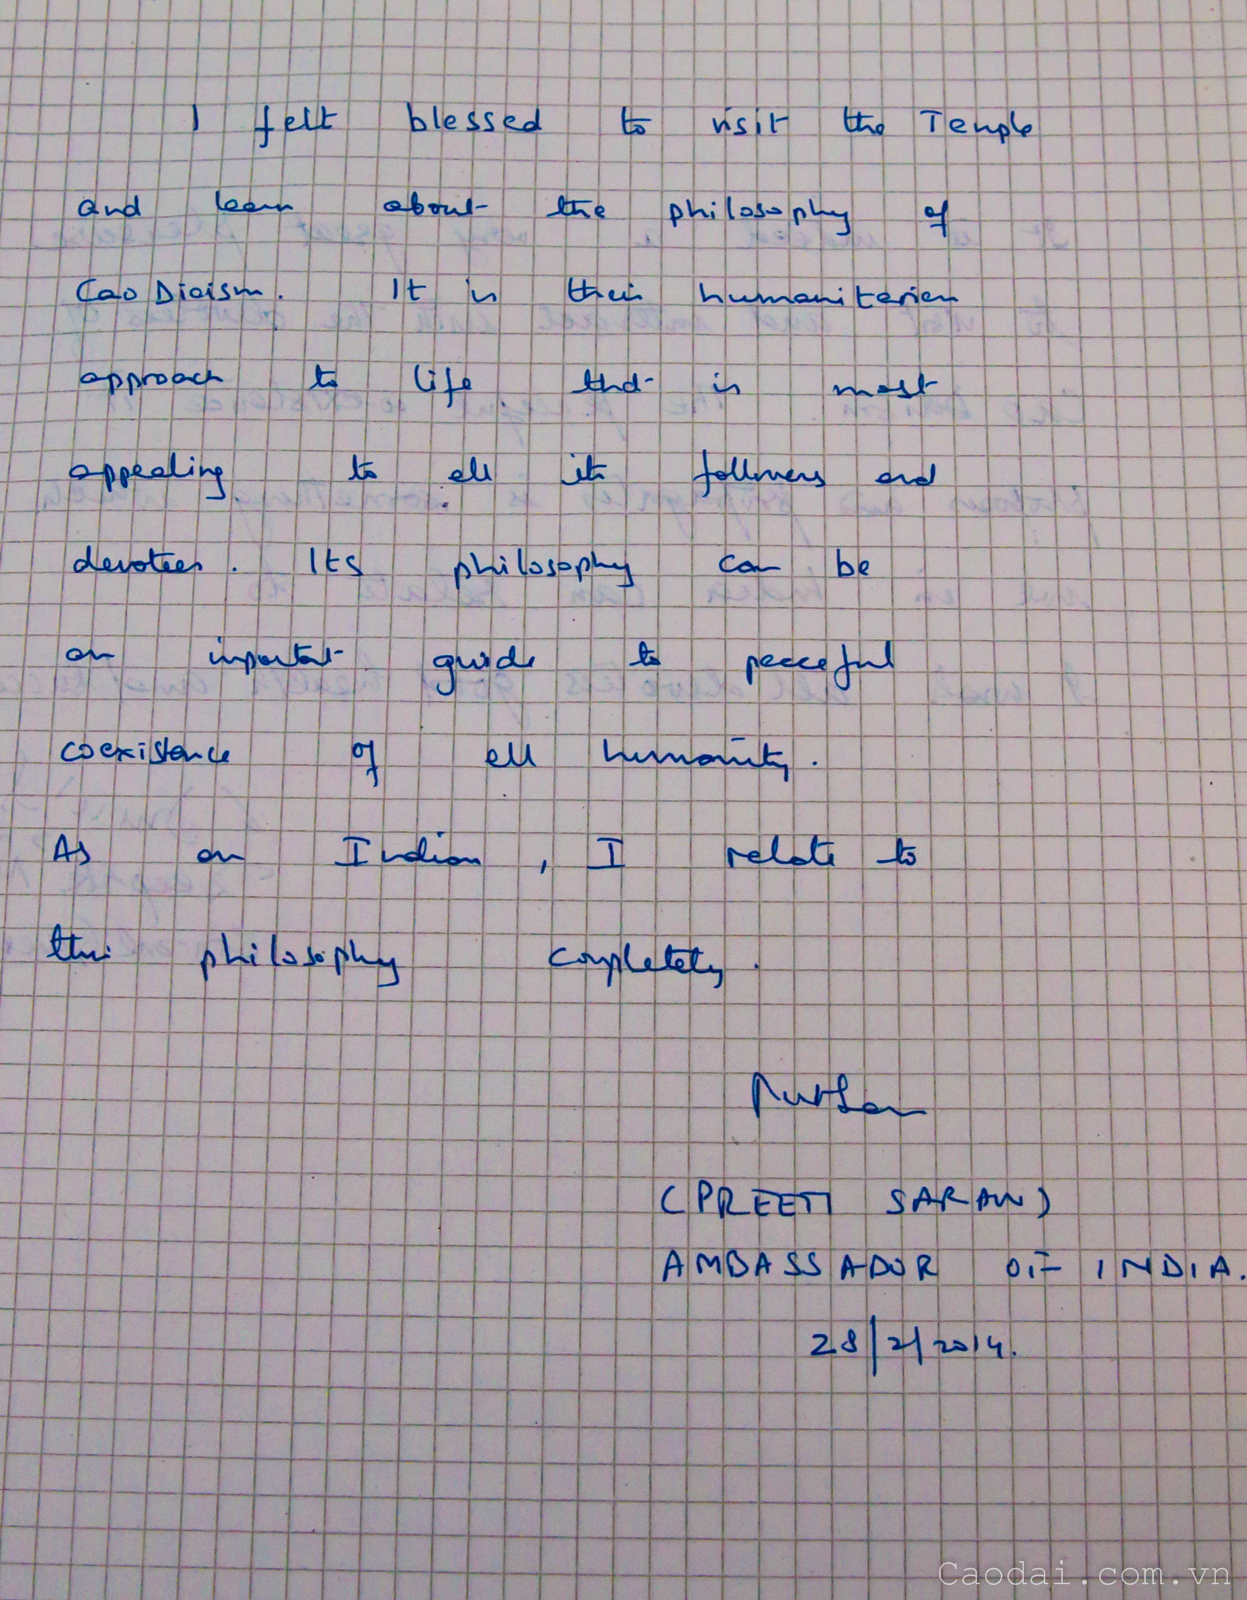 I felt blessed to visit the Temple
and learn about the philosophy of
Cao Diaism. It is their humanitarian
approach to life that is most
appealing to all its followers and
devotees. Its philosophy can be
an important guide to peaceful
coexistence of all humanity.
As an Indian, I relate to
this philosophy completely.
(PREETI SARAN)
AMBASSADOR OF INDIA.
28/2/2014.
Caodai.com.vn